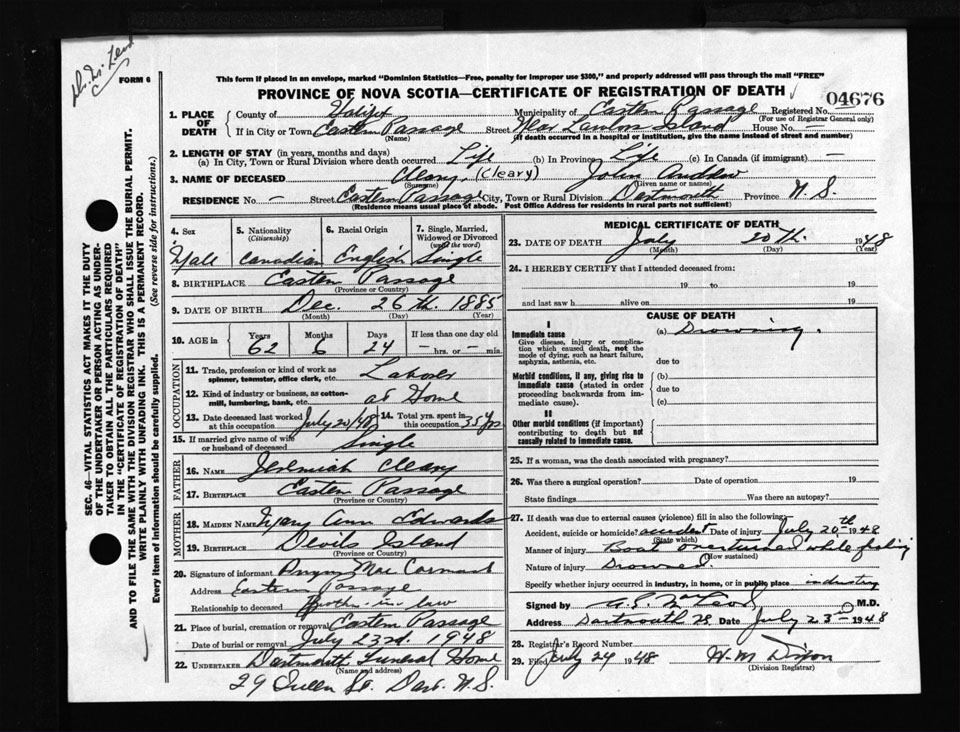 FORM 6
This form if placed in an envelope, marked "Dominion Statistics—Free, penalty for improper use $300," and properly addressed will pass through the mail "FREE"
PROVINCE OF NOVA SCOTIA—CERTIFICATE OF REGISTRATION OF DEATH
04676
1. PLACE OF DEATH
County of Halifax Municipality of Eastern Passage Registered No.
(For use of Registrar General only)
If in City or Town Eastern Passage Street Island House No. —
(Name) (If death occurred in a hospital or institution, give the name instead of street and number)
2. LENGTH OF STAY (in years, months and days)
(a) In City, Town or Rural Division where death occurred Life (b) In Province Life (c) In Canada (if immigrant) —
3. NAME OF DECEASED Cleary, (Cleary) John Andrew
(Surname) (Given name or names)
RESIDENCE No. — Street Eastern Passage City, Town or Rural Division Dartmouth Province N.S.
(Residence means usual place of abode. Post Office Address for residents in rural parts not sufficient)
4. Sex 5. Nationality (Citizenship) 6. Racial Origin 7. Single, Married, Widowed or Divorced (write the word)
Male Canadian English Single
8. BIRTHPLACE Eastern Passage
(Province or Country)
9. DATE OF BIRTH Dec. 26th. 1885
(Month) (Day) (Year)
10. AGE in Years Months Days If less than one day old
62 6 24 — hrs. or — min.
OCCUPATION
11. Trade, profession or kind of work as spinner, teamster, office clerk, etc. Laborer
12. Kind of industry or business, as cotton-mill, lumbering, bank, etc. at Home
13. Date deceased last worked at this occupation July 20/48 14. Total yrs. spent in this occupation 35 yrs
15. If married give name of wife or husband of deceased Single
FATHER
16. NAME Jeremiah Cleary
17. BIRTHPLACE Eastern Passage
(Province or Country)
MOTHER
18. MAIDEN NAME Mary Ann Edwards
19. BIRTHPLACE Devils Island
(Province or Country)
20. Signature of informant Mac Cormack
Address Eastern Passage
Relationship to deceased Brother-in-law
21. Place of burial, cremation or removal Eastern Passage
Date of burial or removal July 23rd. 1948
22. UNDERTAKER Dartmouth Funeral Home
(Name and address)
29 Queen St. Dart. N.S.
MEDICAL CERTIFICATE OF DEATH
23. DATE OF DEATH July 20th. 1948
(Month) (Day) (Year)
24. I HEREBY CERTIFY that I attended deceased from:
19 to 19
and last saw h alive on 19
CAUSE OF DEATH
I
Immediate cause (a) Drowning.
Give disease, injury or complication which caused death, not the mode of dying, such as heart failure, asphyxia, asthenia, etc.
due to
Morbid conditions, if any, giving rise to immediate cause (stated in order proceeding backwards from immediate cause).
(b)
due to
(c)
II
Other morbid conditions (if important) contributing to death but not causally related to immediate cause.
25. If a woman, was the death associated with pregnancy?
26. Was there a surgical operation? Date of operation 19
State findings Was there an autopsy?
27. If death was due to external causes (violence) fill in also the following:
Accident, suicide or homicide? accident Date of injury July 20th 1948
(State which)
Manner of injury Boat overturned while fishing
(How sustained)
Nature of injury Drowned.
Specify whether injury occurred in industry, in home, or in public place industry
Signed by M.D.
Address Dartmouth NS. Date July 23rd 1948
28. Registrar's Record Number
29. Filed July 24 1948 H.M. Dixon
(Division Registrar)
SEC. 46—VITAL STATISTICS ACT MAKES IT THE DUTY
OF THE UNDERTAKER OR PERSON ACTING AS UNDER-
TAKER TO OBTAIN ALL THE PARTICULARS REQUIRED
IN THE "CERTIFICATE OF REGISTRATION OF DEATH"
AND TO FILE THE SAME WITH THE DIVISION REGISTRAR WHO SHALL ISSUE THE BURIAL PERMIT.
WRITE PLAINLY WITH UNFADING INK. THIS IS A PERMANENT RECORD.
Every item of information should be carefully supplied. (See reverse side for instructions.)